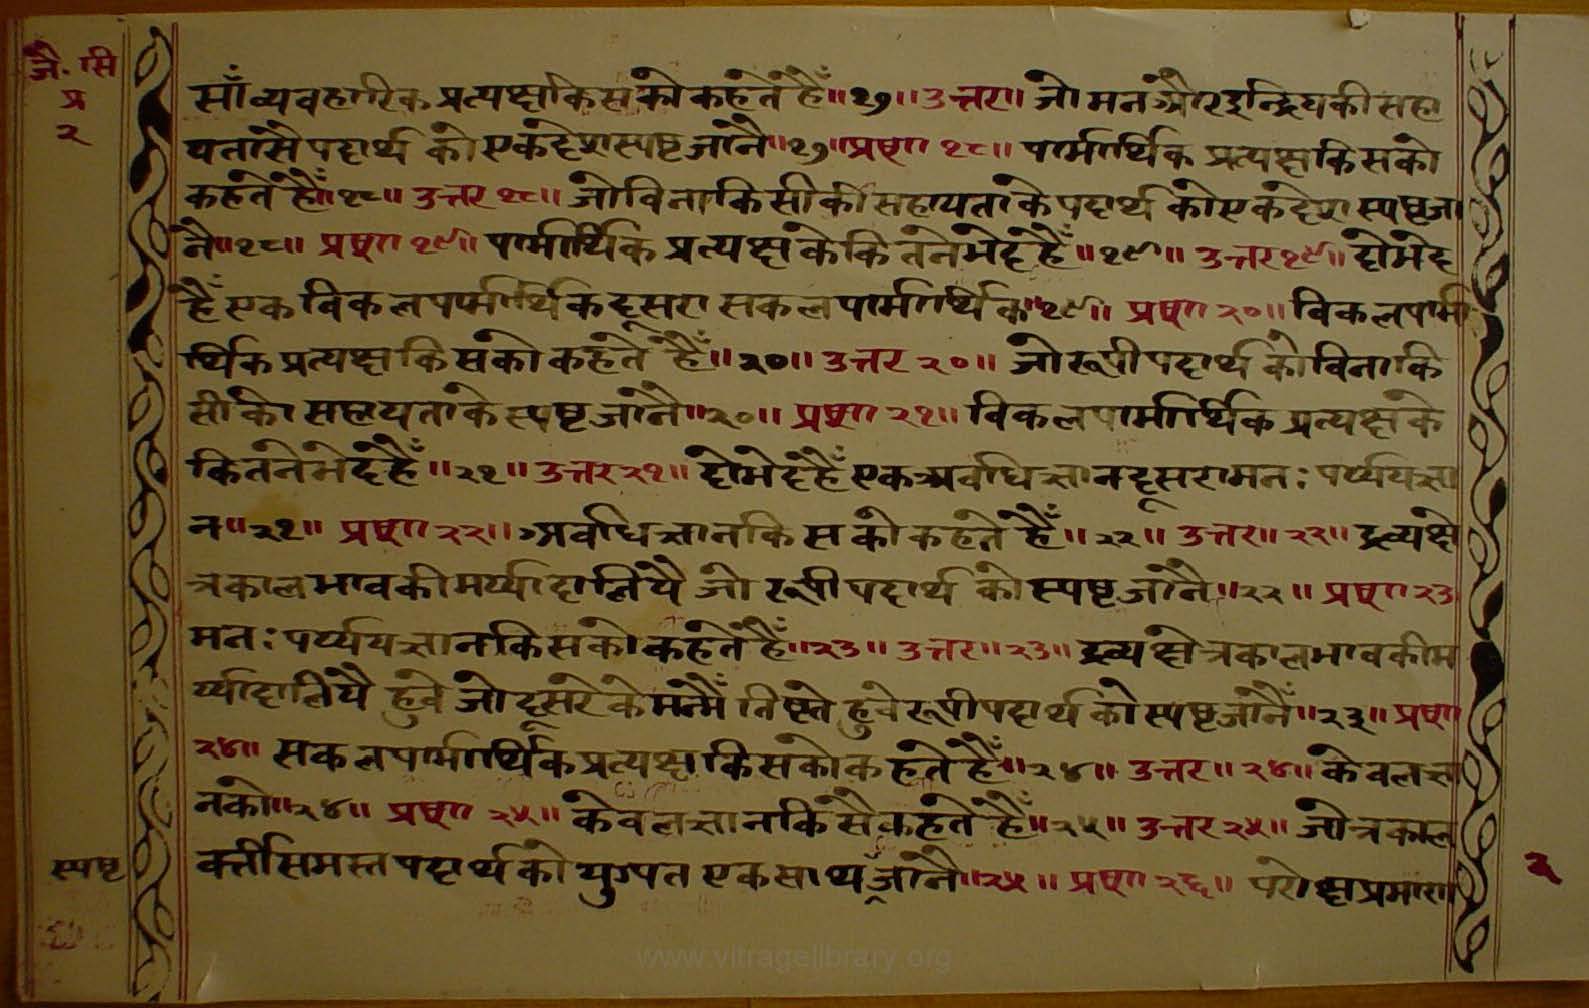 जै. सि
प्र
२
साँव्यवहारिक प्रत्यक्ष किसको कहते हैँ॥१७॥ उत्तर॥ जो मन और इन्द्रिय की सहा
यता सै पदार्थ को एकदेश स्पष्ट जांनै॥१७॥ प्रष्ण १८॥ पार्मार्थिक प्रत्यक्ष किसको
कहते हैँ॥१८॥ उत्तर १८॥ जो विना किसी की सहायता के पदार्थ को एकदेश स्पष्ट जा
नै॥१८॥ प्रष्ण १९॥ पार्मार्थिक प्रत्यक्ष के कितने भेद हैँ॥१९॥ उत्तर १९॥ दो भेद
हैँ एक विकल पार्मार्थिक दूसरा सकल पार्मार्थिक॥१९॥ प्रष्ण २०॥ विकल पार्मा
र्थिक प्रत्यक्ष किसको कहते हैँ॥२०॥ उत्तर २०॥ जो रूपी पदार्थ को विना कि
सी की सहायता के स्पष्ट जांनै॥२०॥ प्रष्ण २१॥ विकल पार्मार्थिक प्रत्यक्ष के
कितने भेद हैँ॥२१॥ उत्तर २१॥ दो भेद हैँ एक अवधिज्ञान दूसरा मनः पर्य्ययज्ञा
न॥२१॥ प्रष्ण २२॥ अवधिज्ञान किसको कहते हैँ॥२२॥ उत्तर॥ २२॥ द्रव्य क्षे
त्र काल भाव की मर्य्यादा लियै जो रूपी पदार्थ को स्पष्ट जांनै॥२२॥ प्रष्ण २३
मनः पर्य्ययज्ञान किसको कहते हैँ॥२३॥ उत्तर॥ २३॥ द्रव्य क्षेत्र काल भाव की म
र्य्यादा लियै हुवे जो दूसरे के मन्मैँ तिष्टते हुवे रूपी पदार्थ को स्पष्ट जांनैँ॥२३॥ प्रष्ण
२४॥ सकल पार्मार्थिक प्रत्यक्ष किसको कहते हैँ॥२४॥ उत्तर॥ २४॥ केवलज्ञा
न को॥२४॥ प्रष्ण २५॥ केवलज्ञान किसै कहते हैँ॥२५॥ उत्तर २५॥ जो त्रकाल
वर्त्ती समस्त पदार्थ को युग्पत एक साथ जांनै॥२५॥ प्रष्ण २६॥ परोक्ष प्रमाण
स्पष्ट
२
www.vitragelibrary.org